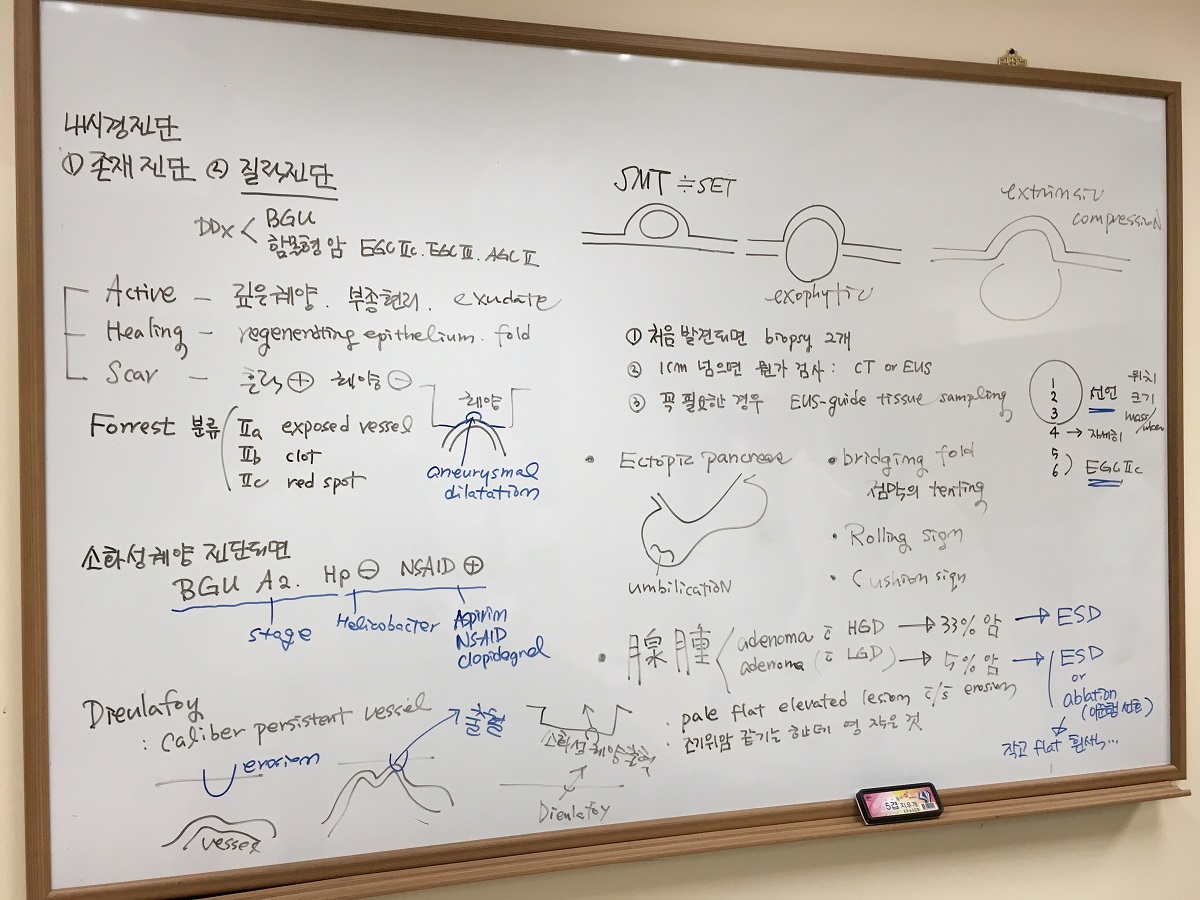 내시경진단
① 존재진단 ② 질적진단
DDx < BGU
함몰형 암 EGC Ⅱc. EGC Ⅲ. AGC Ⅱ
Active – 깊은궤양. 부종현저. exudate
Healing – regenerating epithelium. fold
Scar – 흔적 ⊕ 궤양 ⊖
궤양
Forrest 분류
Ⅱa exposed vessel
Ⅱb clot
Ⅱc red spot
aneurysmal
dilatation
소화성궤양 진단되면
BGU A2. Hp ⊖ NSAID ⊕
stage
Helicobacter
Aspirin
NSAID
clopidogrel
Dieulafoy
: caliber persistent vessel
erosion
vessel
출혈
소화성궤양출혈
Dieulafoy
SMT ≒ SET
exophytic
extrinsic
compression
① 처음 발견되면 biopsy 2개
② 1cm 넘으면 뭔가 검사: CT or EUS
③ 꼭 필요한 경우 EUS-guide tissue sampling
1
2 선언
3
4 → 자세히
5
6 ) EGC Ⅱc
위치
크기
mass/ulcer
• Ectopic pancreas
umbilication
• bridging fold
점막의 tenting
• Rolling sign
• Cushion sign
• 腺腫
adenoma c̄ HGD → 33% 암 → ESD
adenoma (c̄ LGD) → 5% 암 → ESD
or
ablation
(이준행 선호)
작고 flat 흰색...
· pale flat elevated lesion c̄/s̄ erosion
· 조기위암 같기는 한데 영 작은 것
5겹 지우개